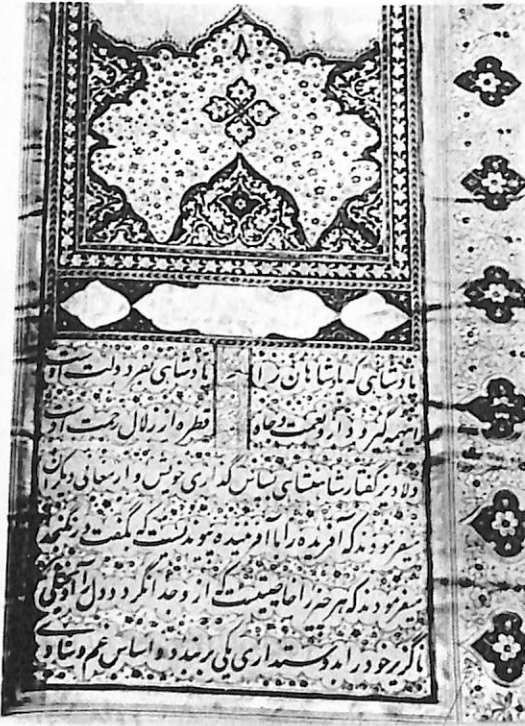 پادشاهی که پادشاهان را پادشاهی بفر دولت اوست
همه گیر و دار و نعمت و جاه قطره از زلال رحمت اوست
دلاویز گفتار شاهنشاهی سپاس گذاری خویش و ارمغانی دیگران
میفرمودند که آفریده را با آفریننده پیوندیست که گفت در نگنجد
میفرمودند که هر چیز را خاصیتیست که از و جدا نگردد و دل را آویزشی
ناگزیر خود را بدوستداری یکی بر بندد و اساس غم و شادی